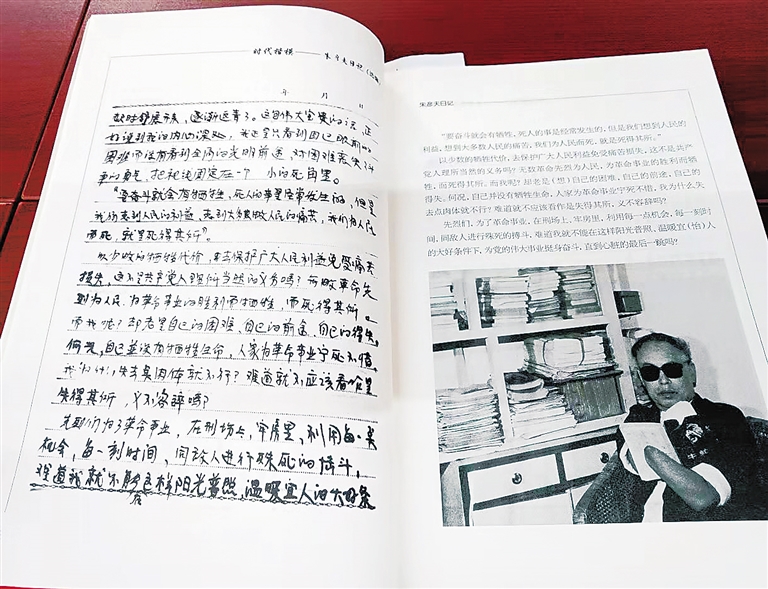 时代楷模——朱彦夫日记
年 月 日
舒展开来，逐渐远去了。这段伟大宝贵的话，正
好说到我的内心深处，我还只看到自己眼前的
困难而没有看到全局的光明前途，对困难丧失斗
争的勇气，把我固定在一个小的死角里。
“要奋斗就会有牺牲，死人的事是经常发生的，但是
我们想到人民的利益，想到大多数人民的痛苦，我们为人民
而死，就是死得其所”。
以少数的牺牲代价，去保护广大人民利益免受痛苦
损失，这不是共产党人理所当然的义务吗？无数革命先
烈为人民，为革命事业的胜利而牺牲，而死得其所。
而我呢？却老是自己的困难、自己的前途、自己的得失，
何况，自己并没有牺牲生命，人家为革命事业宁死不惜，
我为什么失去点肉体就不行？难道就不应该看作是
失得其所，义不容辞吗？
先烈们为了革命事业，在刑场上，牢房里，利用每一点
机会，每一刻时间，同敌人进行殊死的搏斗，
难道我就不能在这样阳光普照，温暖宜人的大好条
朱彦夫日记
“要奋斗就会有牺牲，死人的事是经常发生的，但是我们想到人民的
利益，想到大多数人民的痛苦，我们为人民而死，就是死得其所。”
以少数的牺牲代价，去保护广大人民利益免受痛苦损失，这不是共产
党人理所当然的义务吗？无数革命先烈为人民，为革命事业的胜利而牺
牲，而死得其所。而我呢？却老是（想）自己的困难，自己的前途，自己的
得失。何况，自己并没有牺牲生命，人家为革命事业宁死不惜，我为什么失
去点肉体就不行？难道就不应该看作是失得其所，义不容辞吗？
先烈们，为了革命事业，在刑场上，牢房里，利用每一点机会，每一刻时
间，同敌人进行殊死的搏斗，难道我就不能在这样阳光普照，温暖宜（怡）人
的大好条件下，为党的伟大事业挺身奋斗，直到心脏的最后一跳吗？